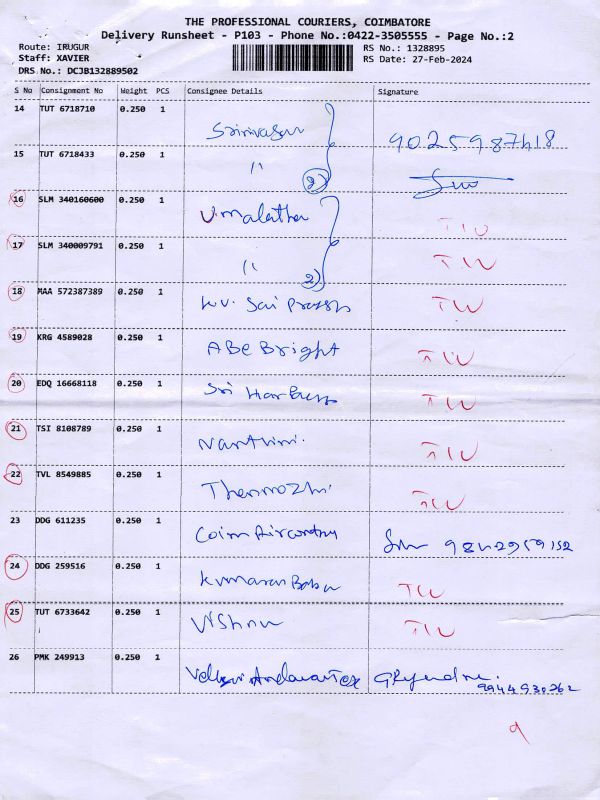 THE PROFESSIONAL COURIERS, COIMBATORE
Delivery Runsheet - P103 - Phone No.:0422-3505555 - Page No.:2
Route: IRUGUR RS No.: 1328895
Staff: XAVIER RS Date: 27-Feb-2024
DRS No.: DCJB132889502
S No Consignment No Weight PCS Consignee Details Signature
14 TUT 6718710 0.250 1 Srinivasan 9025987418
15 TUT 6718433 0.250 1 " 2)
16 SLM 340160600 0.250 1 V.malatha TW
17 SLM 340009791 0.250 1 " 2) TW
18 MAA 572387389 0.250 1 Sai TW
19 KRG 4589028 0.250 1 ABe Bright TW
20 EDQ 16668118 0.250 1 Sri TW
21 TSI 8108789 0.250 1 TW
22 TVL 8549885 0.250 1 Thenmozhi TW
23 DDG 611235 0.250 1 Coim
24 DDG 259516 0.250 1 Kumaran Babu TW
25 TUT 6733642 0.250 1 Vishnu TW
26 PMK 249913 0.250 1 9944930262
9